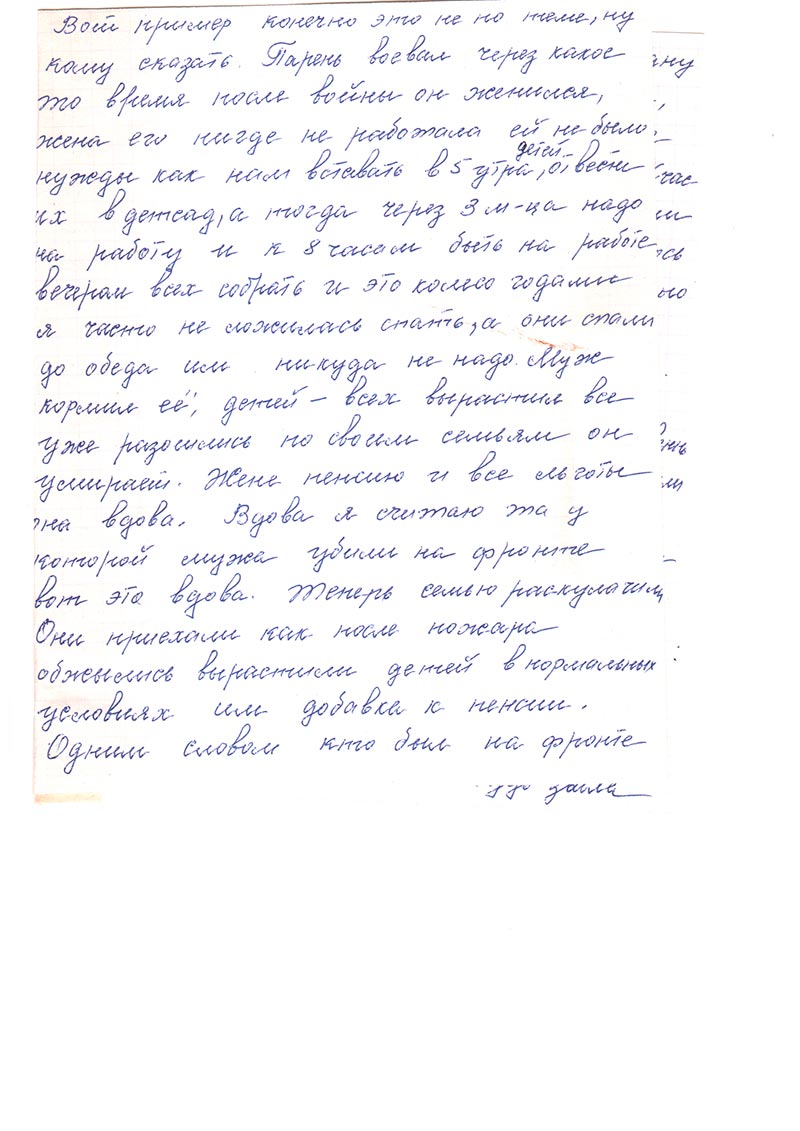 Вот пример конечно это не по теме, ну
кому сказать. Парень воевал через какое
то время после войны он женился,
жена его нигде не работала ей не было
нужды как нам вставать в 5 утра, детей отвести
их в детсад, а тогда через 3 м-ца надо
на работу и к 8 часам быть на работе
вечером всех собрать и это колесо годами
я часто не ложилась спать, а они спали
до обеда им никуда не надо. Муж
кормил её, детей – всех вырастил все
уже разошлись по своим семьям он
умирает. Жене пенсию и все льготы
она вдова. Вдова я считаю та у
которой мужа убили на фронте
вот это вдова. Теперь семью раскулачили
Они приехали как после пожара
обжылись вырастили детей в нормальных
условиях им добавка к пенсии.
Одним словом кто был на фронте